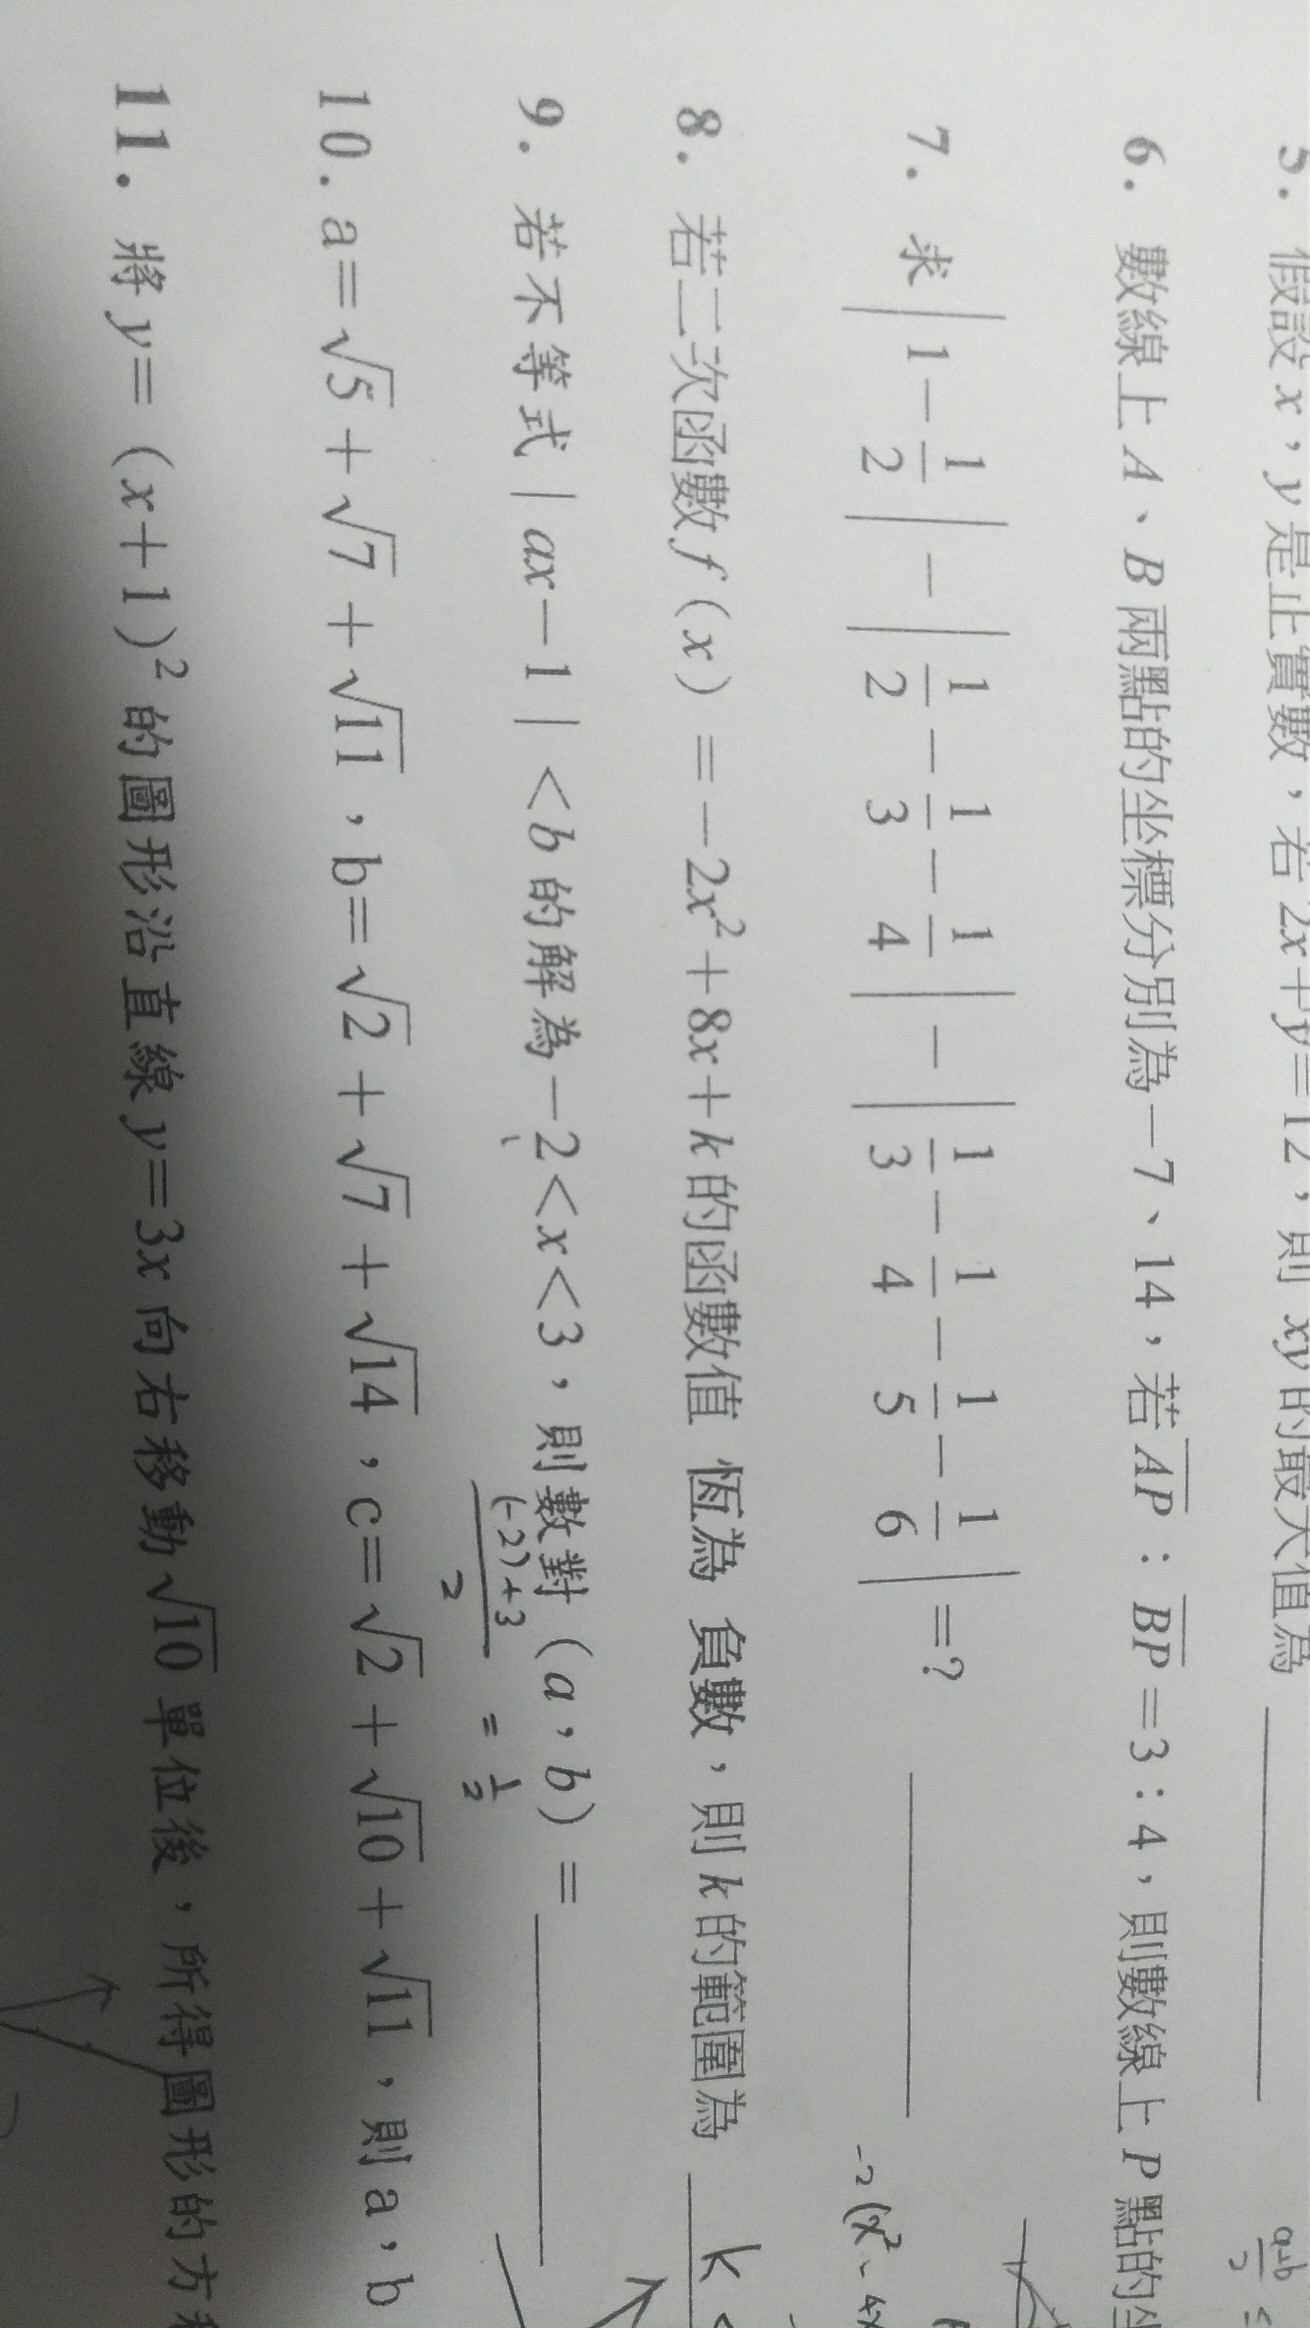 5. 假設 x，y 是正實數，若 2x+y=12，則 xy 的最大值為
6. 數線上 A、B 兩點的坐標分別為−7、14，若 AP：BP=3：4，則數線上 P 點的坐
7. 求 |1−1/2|−|1/2−1/3−1/4|−|1/3−1/4−1/5−1/6|=?
−2(x²−4x
8. 若二次函數 f(x)=−2x²+8x+k 的函數值 恆為 負數，則 k 的範圍為 k<
9. 若不等式 |ax−1|<b 的解為−2<x<3，則數對 (a，b)=
(−2)+3/2 = 1/2
10. a=√5+√7+√11，b=√2+√7+√14，c=√2+√10+√11，則 a，b
11. 將 y=(x+1)² 的圖形沿直線 y=3x 向右移動 √10 單位後，所得圖形的方